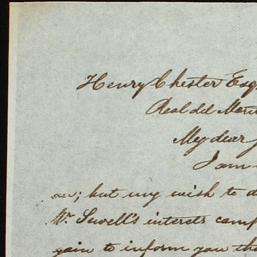 Henry Chester Esq
Real del Mon
My dear
I am
an; but my wish to
Mr. Sewell's interets comp
gain to inform you tha